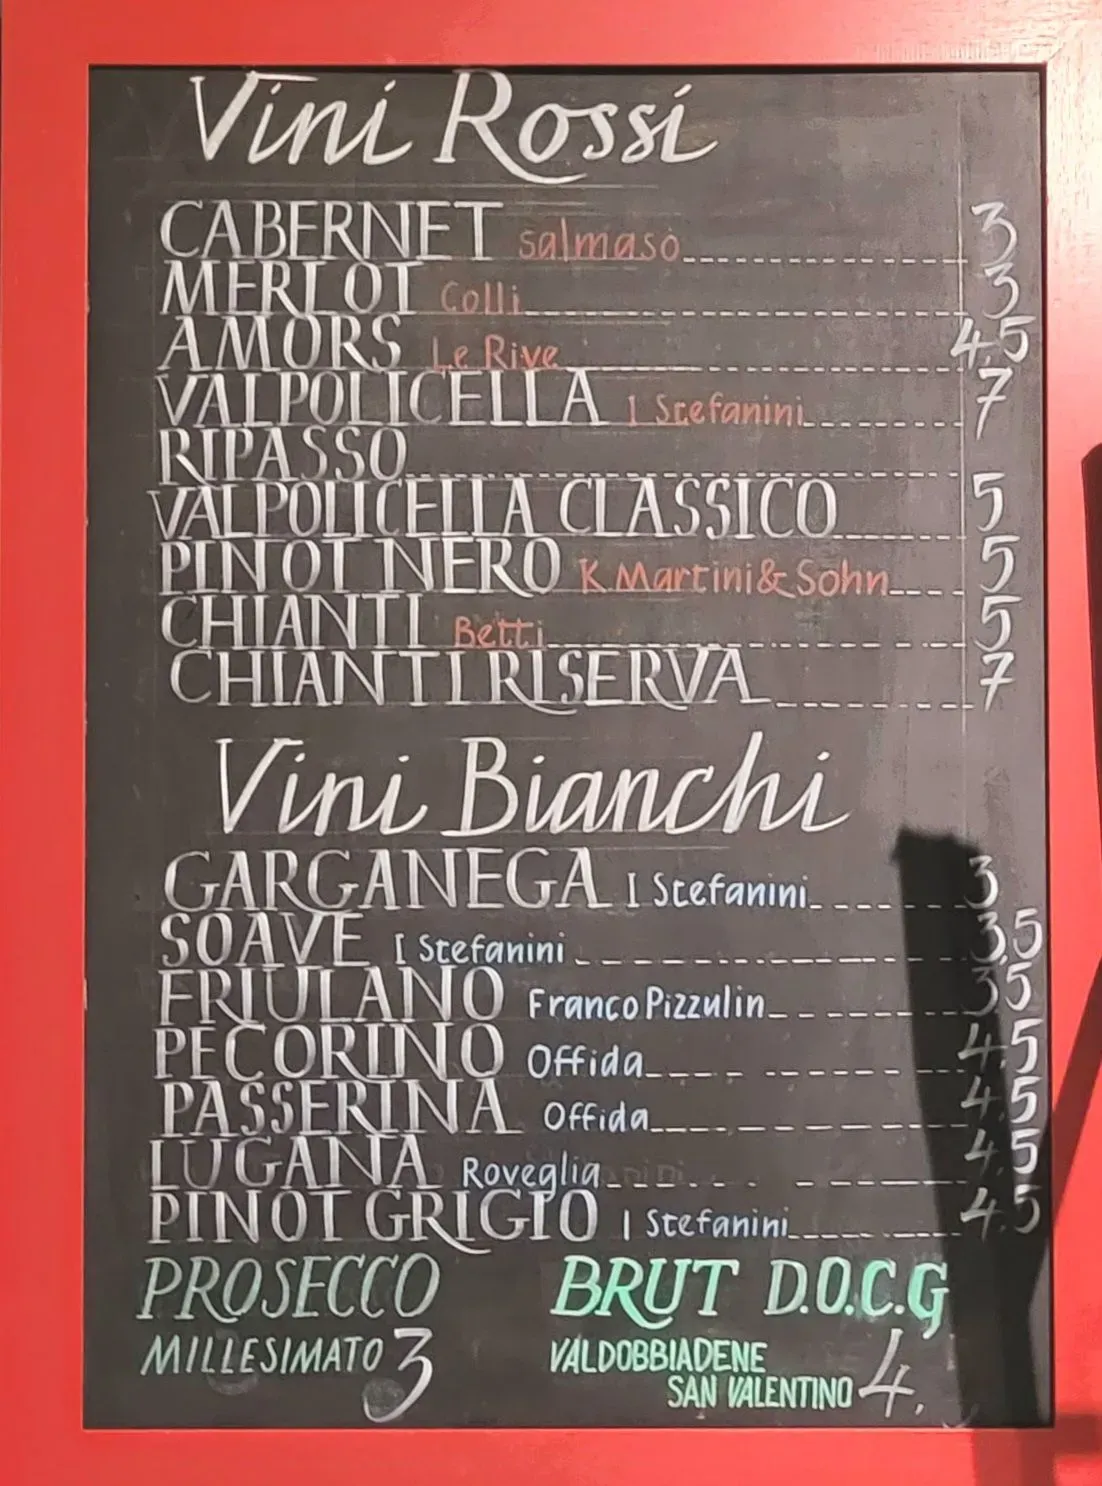 Vini Rossi
CABERNET salmaso 3
MERLOT Colli 3
AMORS Le Rive 4,5
VALPOLICELLA I Stefanini 7
RIPASSO
VALPOLICELLA CLASSICO 5
PINOT NERO K.Martini&Sohn 5
CHIANTI Betti 5
CHIANTI RISERVA 7
Vini Bianchi
GARGANEGA I Stefanini 3
SOAVE I Stefanini 3,5
FRIULANO Franco Pizzulin 3,5
PECORINO Offida 4,5
PASSERINA Offida 4,5
LUGANA Roveglia 4,5
PINOT GRIGIO I Stefanini 4,5
PROSECCO
MILLESIMATO 3
BRUT D.O.C.G
VALDOBBIADENE
SAN VALENTINO 4,